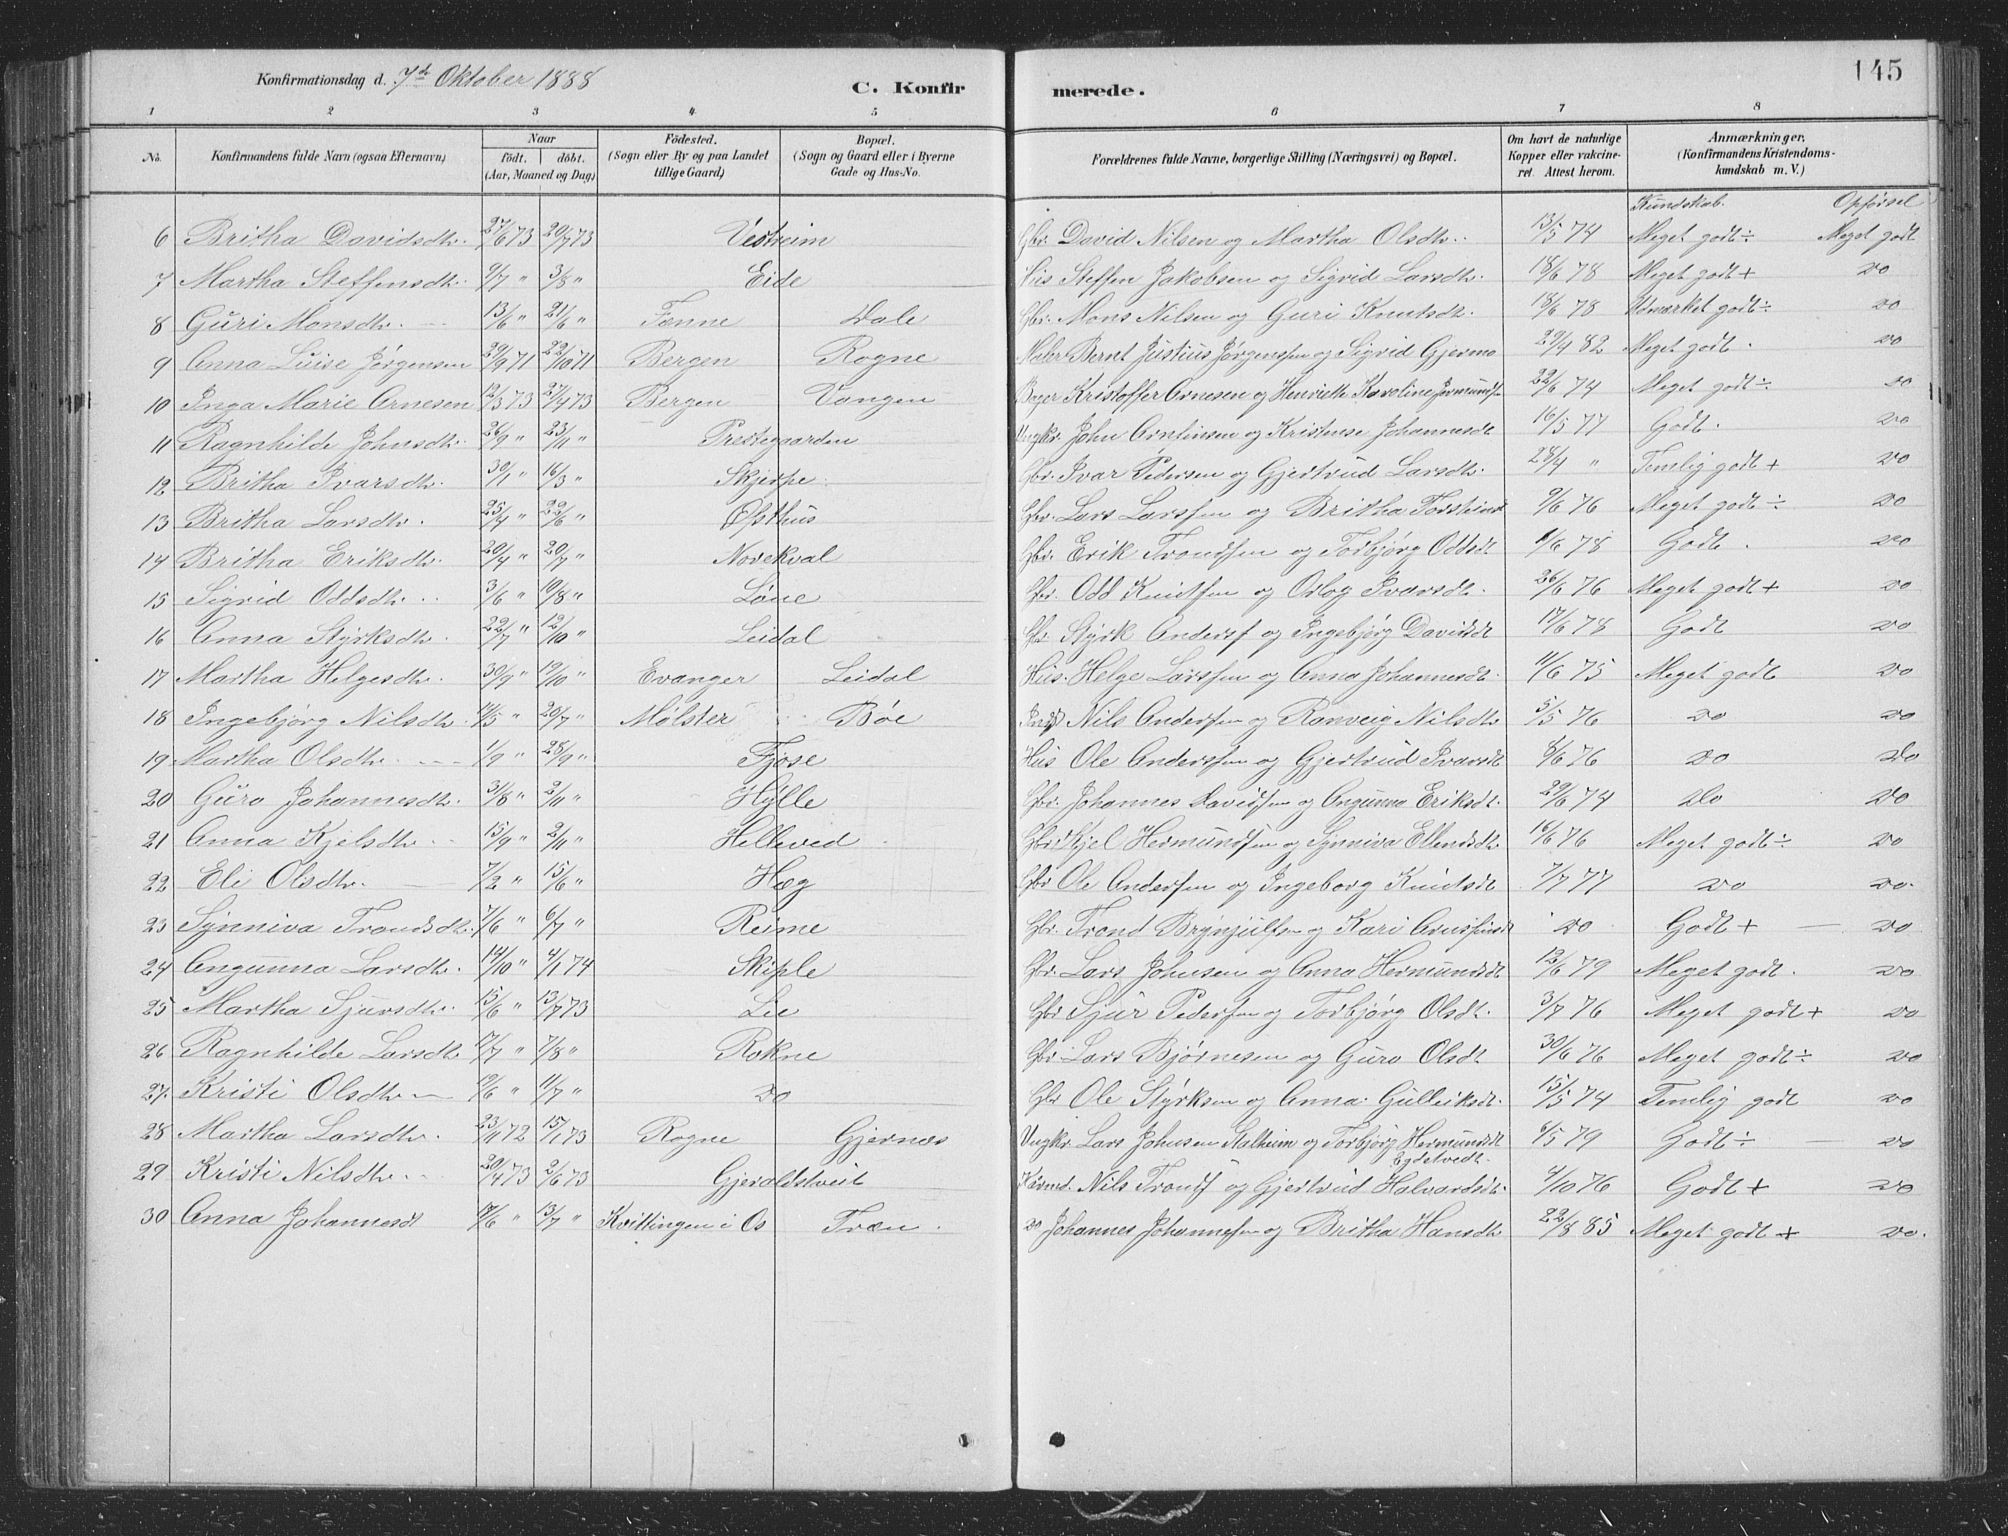 Konfirmationsdag d. 7de Oktober 1888 C. Konfir merede. 145
1 2 3 4 5 6 7 8
No. Konfirmandens fulde Navn (ogsaa Efternavn) Naar födt. döbt. (Aar, Maaned og Dag) Födested. (Sogn eller By og paa Landet tillige Gaard) Bopæl. (Sogn og Gaard eller i Byerne Gade og Hus-No. Forældrenes fulde Navne, borgerlige Stilling (Næringsvei) og Bopæl. Om havt de naturlige Kopper eller vakcineret. Attest herom. Anmærkninger. (Konfirmandens Kristendomskundskab m. V.)
Kundskab. Opførsel
6 Britha Davidsdtr. 27/6 73 20/7 73 Vestreim Gbr. David Nilsen og Martha Olsdtr. 13/5 74 Meget godt ÷ Meget godt
7 Martha Steffensdtr. 9/7 " 3/8 " Eide Steffen Jakobsen og Sigrid Larsdtr. 18/6 78 Meget godt + do
8 Guri Monsdtr. 13/6 " 21/6 " Fenne Dale Gbr. Mons Nilsen og Guri Knutsdtr. 18/6 78 Udmærket godt ÷ do
9 Anna Luise Jørgensen 29/9 71 22/10 71 Bergen Rogne Maler Bernt Justius Jørgenssen og Sigrid Gjermo 29/4 82 Meget godt. do
10 Inga Marie Arnesen 12/3 73 27/4 73 Bergen Vangen Bager Kristoffer Arnesen og Henriette Karoline 22/6 74 Meget godt ÷ do
11 Ragnhilde Johnsdtr. 26/9 " 23/11 " Prestegaarden Ungkr. John Arntinsen og Kristense Johannesdt 16/5 77 Godt. do
12 Britha Ivarsdtr. 30/1 " 16/3 " Skjerpe Gbr. Ivar Pedersen og Gjertrud Larsdtr. 28/4 " Temlig godt + do
13 Britha Larsdtr. 25/4 " 22/6 " Østhus Gbr. Lars Larssen og Britha 9/6 76 Meget godt ÷ do
14 Britha Eriksdtr. 20/4 " 20/7 " Norekval Gbr. Erik Trondssen og Torbjørg Oddsdt /6 78 Godt. do
15 Sigrid Oddsdtr. 3/6 " 10/8 " Løne Gbr. Odd Knutssen og Oslog Ivarsdt. 26/6 76 Meget godt + do
16 Anna Styrksdtr. 22/7 " 12/10 " Leidal Gbr. Styrk Anders og Ingebjørg Davidsdt 17/6 78 Godt do
17 Martha Helgesdtr. 30/9 " 19/10 " Evanger Leidal Hus. Helge Larssen og Anna Johannesdt. 11/6 75 Meget godt do
18 Ingebjørg Nilsdtr. 11/5 " 20/7 " Mølster Bøe Nils Anderssen og Ranveig Nilsdtr 5/5 76 do do
19 Martha Olsdtr. 1/9 " 28/9 " Fjose Hus Ole Anderssen og Gjertrud Ivarsdt 8/6 76 do do
20 Guro Johannesdtr. 31/8 " 2/11 " Hylle Gbr. Johannes Davidssen og Angunna Eriksdt. 29/6 74 Do do
21 Anna Kjelsdtr. 15/9 " 2/11 " Helleved Gbr Kjel Hermundssen og Synniva Ellendsdtr. 16/6 76 Meget godt ÷ do
22 Eli Olsdtr. 7/2 " 15/6 " Hæg Gbr Ole Anderssen og Ingeborg Knutsdt 7/7 77 do do
23 Synniva Trondsdtr. 7/6 " 6/7 " Reime Gbr. Trond Brynjulfsen og Kari do Godt + do
24 Angunna Larsdtr. 14/10 " 4/1 74 Skiple Gbr. Lars Johnsen og Anna Hermundsdt 12/6 79 Meget godt. do
25 Martha Sjursdtr. 15/6 " 13/7 73 Lie Gbr Sjur Pederssen og Torbjørg Olsdt. 3/7 76 Meget godt + do
26 Ragnhilde Larsdtr 17/7 " 7/8 " Rokne Gbr. Lars Bjørnesen og Guro Olsdt 30/6 76 Meget godt ÷ do
27. Kristi Olsdtr. 19/6 " 11/7 " do Gbr Ole Styrksen og Anna Gulleiksdt. 15/5 74 Temlig godt do
28 Martha Larsdtr. 23/11 72 15/1 73 Rogne Gjernæs Ungkr Lars Johnsen Stalheim og Torbjørg Hermundsdt Egdetvedt. 6/5 79 Godt ÷ do
29 Kristi Nilsdtr. 20/4 73 2/6 73 Gjeraldstveit Nils Tronds og Gjertrud Halvardsdt. 4/10 76 Godt + do
30 Anna Johannesdt 17/6 " 13/7 " Kvittingen i Os Træn do Johannes Johannessen og Britha Hansdtr 22/8 85 Meget godt + do.